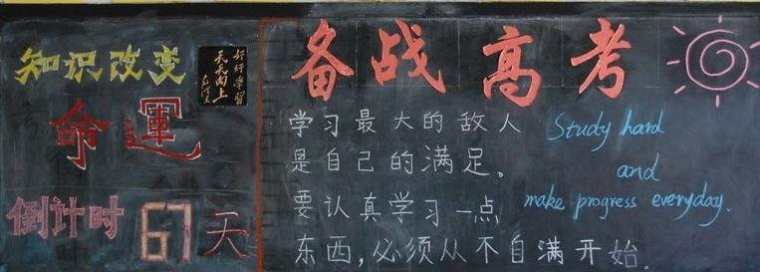 知识改变
好好学习
天天向上
命運
倒计时 67 天
备战高考
学习最大的敌人
是自己的满足。
要认真学习一点
东西,必须从不自满开始。
Study hard
and
make progress everyday.